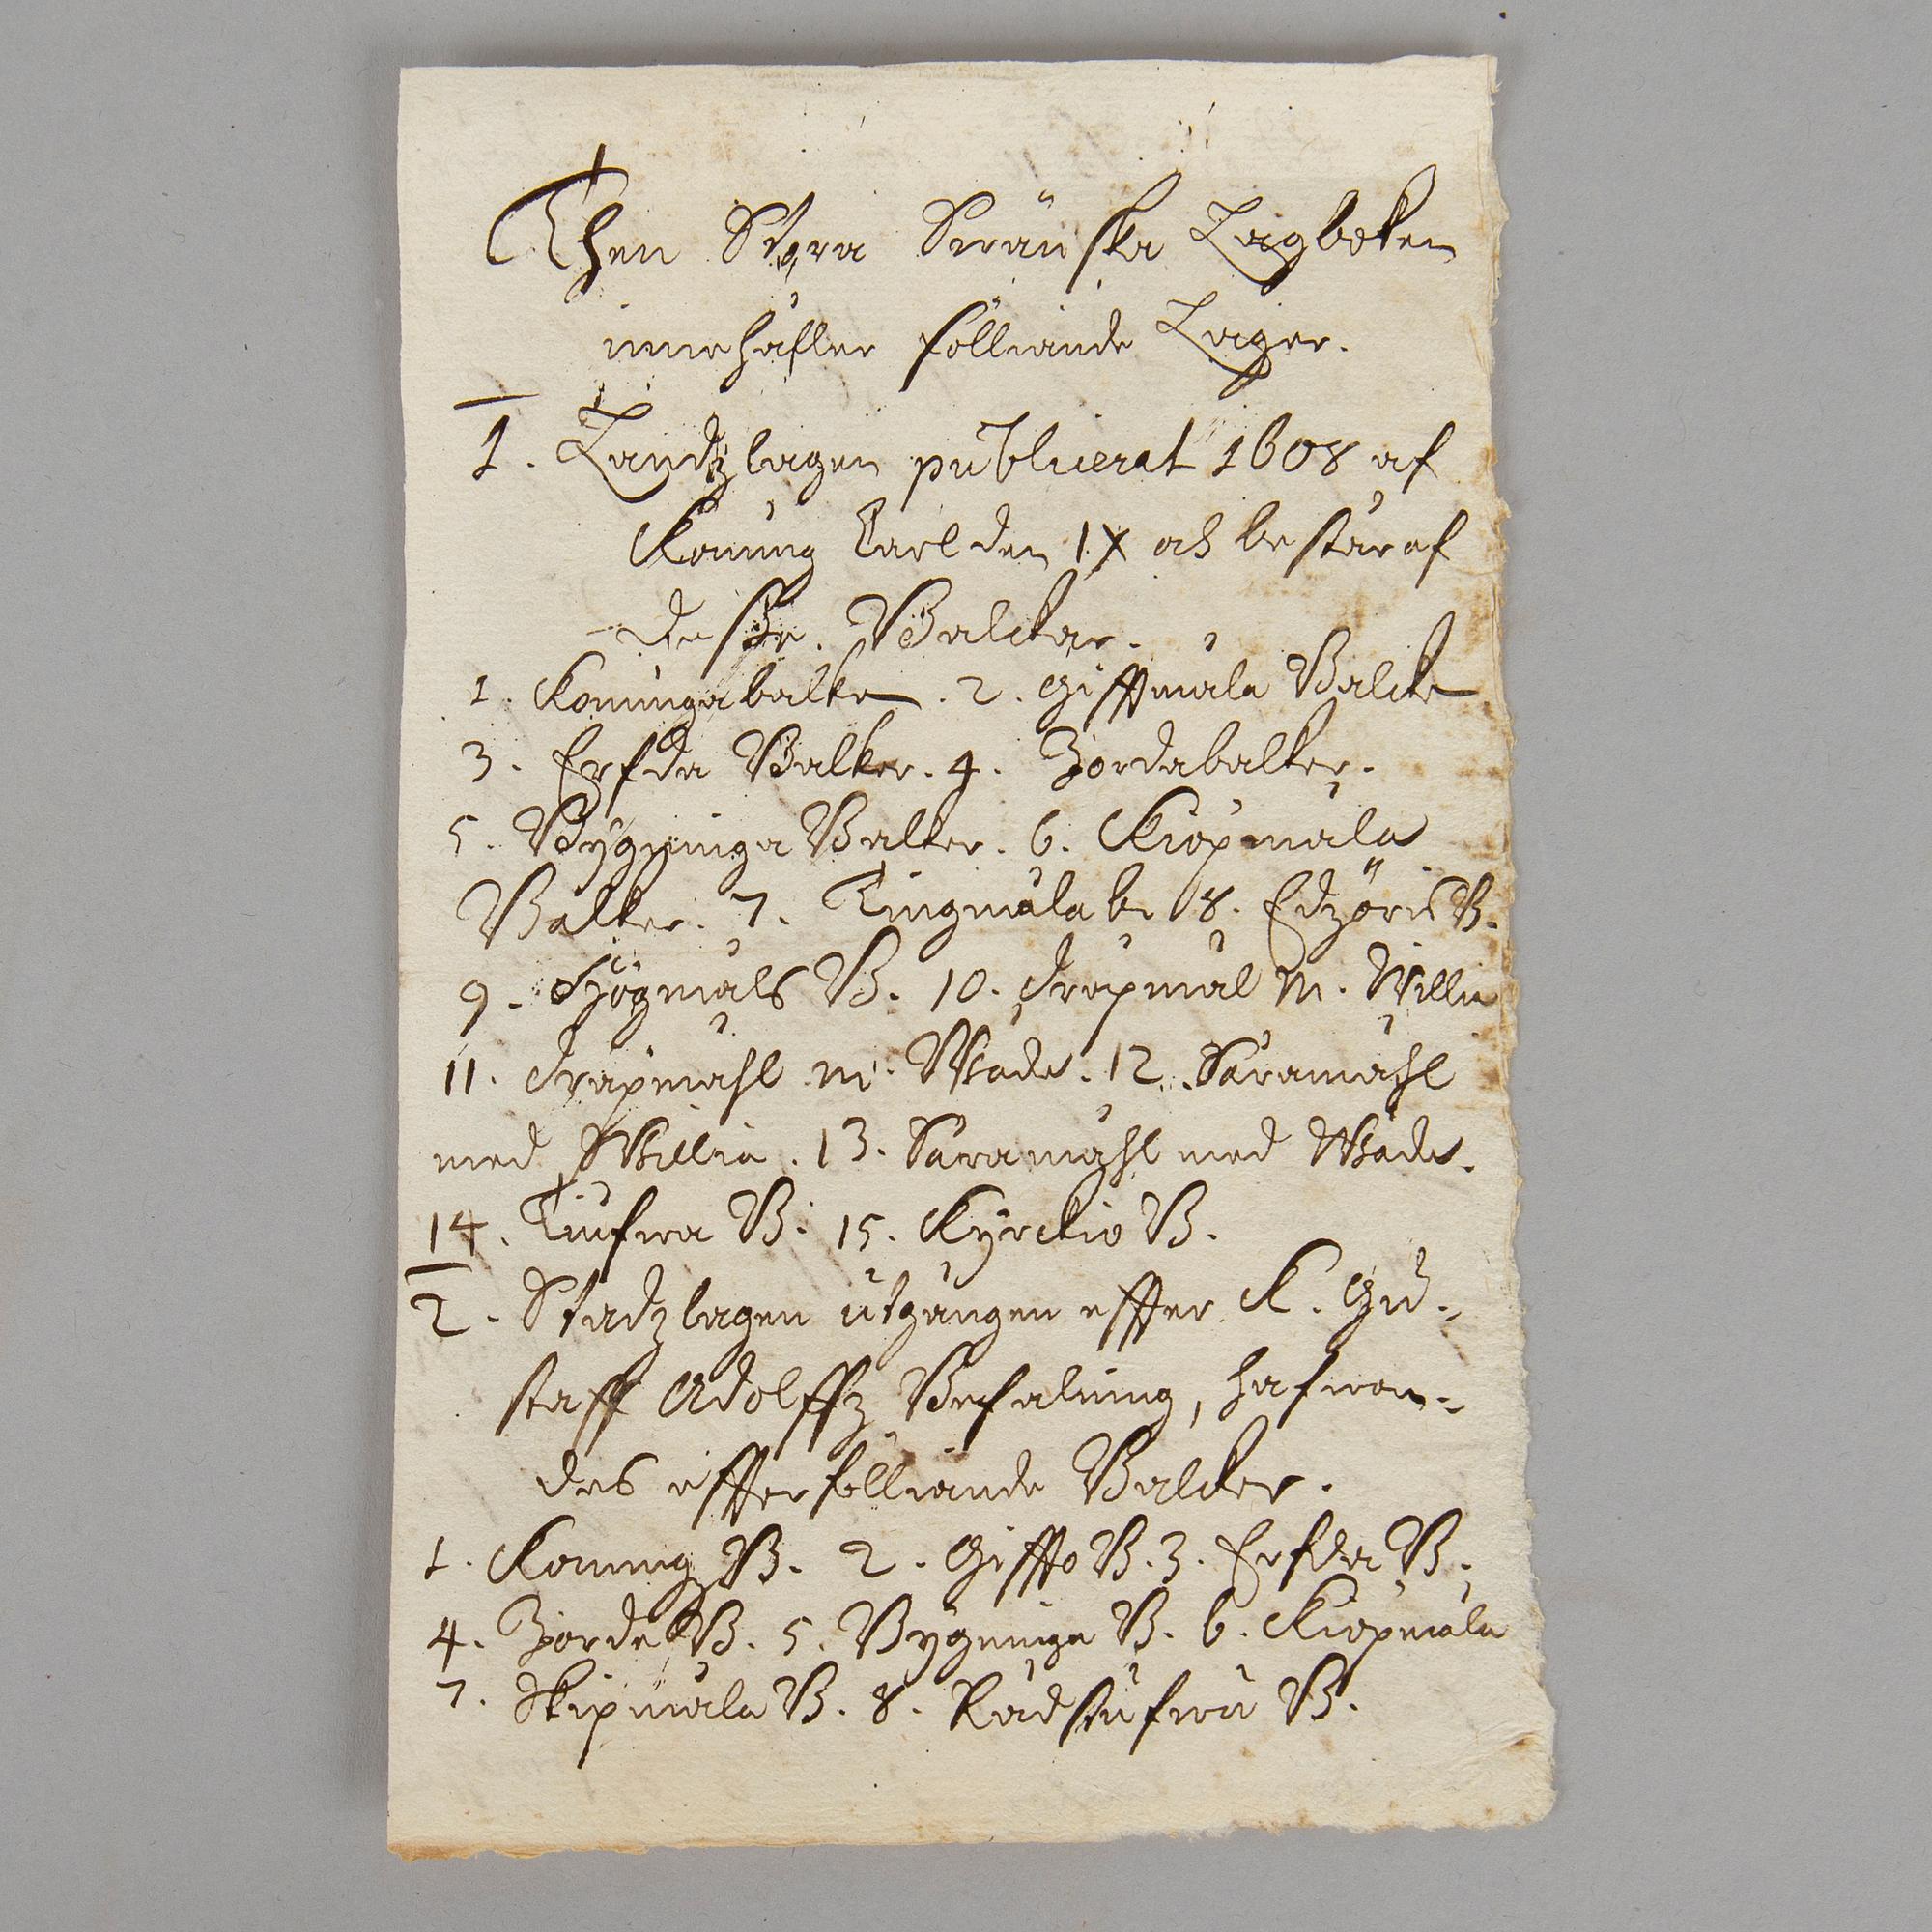 Then Stora Swänska Lagboken
innehåller följiande Lagar.
1. Landzlagen publicerat 1608 af
Konung Carl den IX och består af
desse. Balckar.
1. Konungabalken. 2. Gifftmåla Balcke
3. Erfda Balker. 4. Jordabalker.
5. Bÿgninga Balker. 6. Kiöpmåla
Balker. 7. Tingmåla b. 8. Edzöris B.
9. Högmåls B. 10. Dråpmål m. Willia
11. Dråpmåhl m. Wåda. 12. Såramåhl
med Willia. 13. Såramåhl med Wåda.
14. Tiufwa B. 15. Kÿrckio B.
2. Stadzlagen utgången effter K. Gu-
staff Adolffz Befalning, hafwan-
des effterfölliande Balcker.
1. Konungz B. 2. Giffto B. 3. Erfda B.
4. Jorda B. 5. Bÿgninga B. 6. Kiöpmåla
7. Skipmåla B. 8. Rådstufwu B.